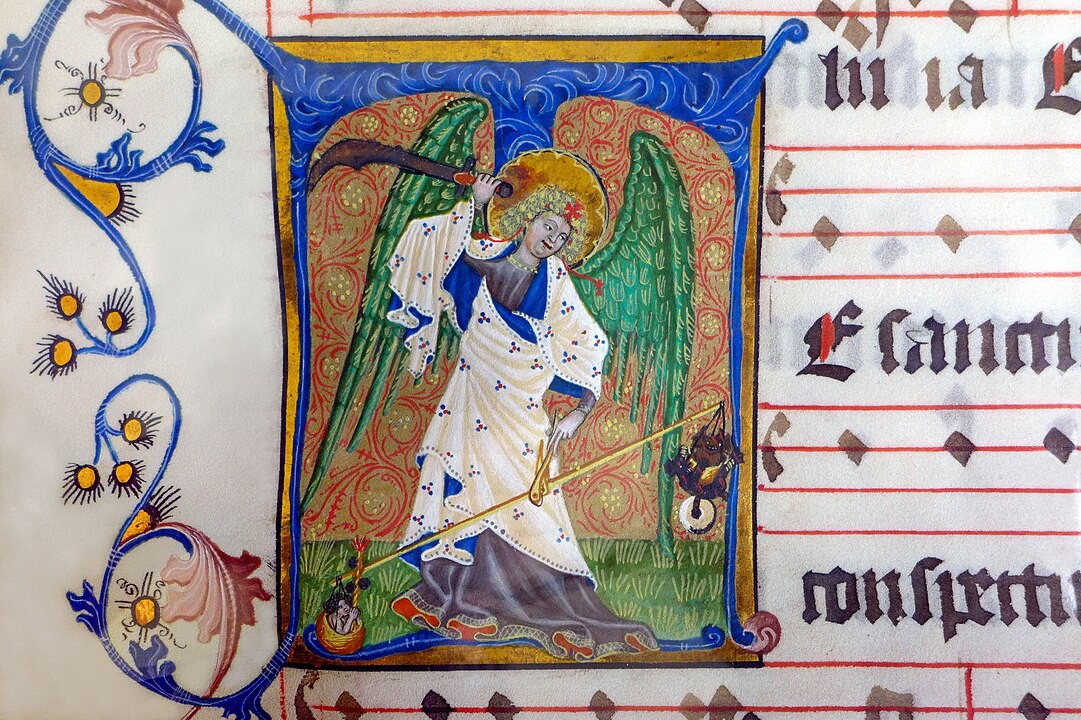 lu ia E
E sanctu
conspectu